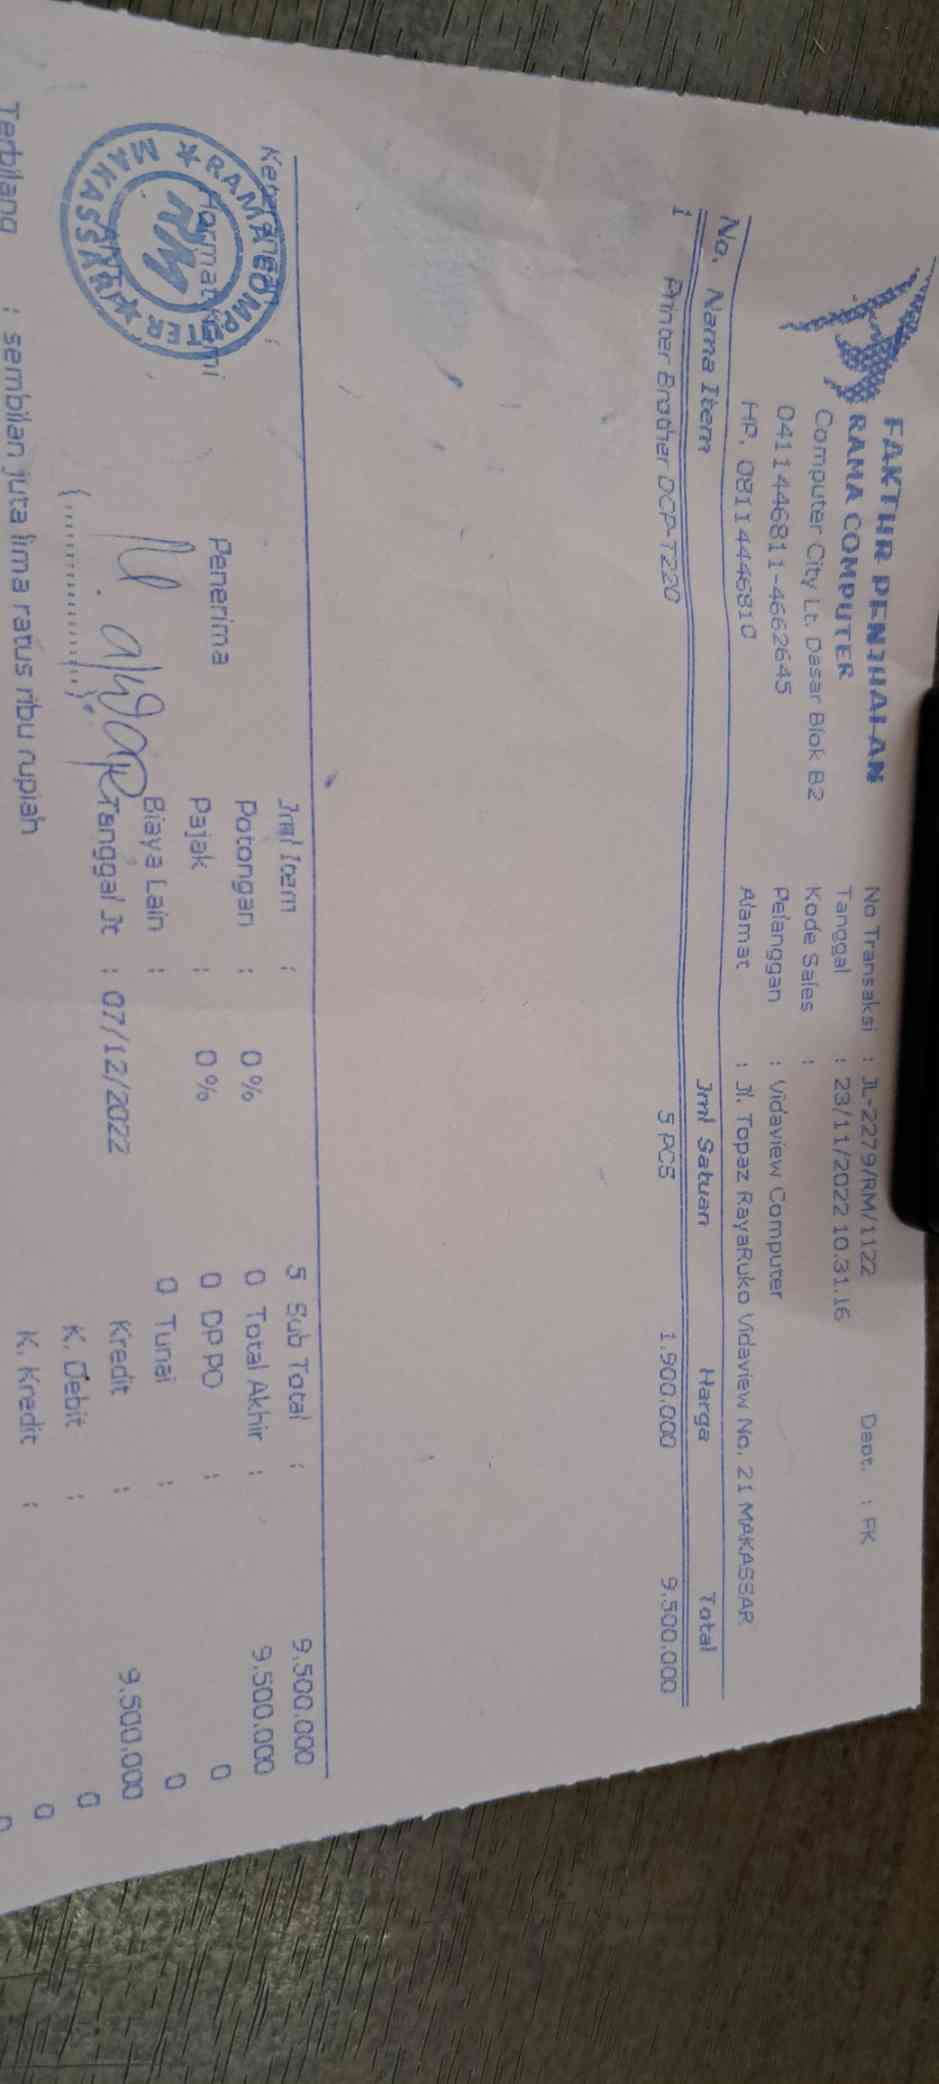 FAKTUR PENJUALAN
RAMA COMPUTER
Computer City Lt. Dasar Blok B2
0411446811-4662645
HP. 08114446810
No Transaksi : JL-2279/RM/1122
Tanggal : 23/11/2022 10.31.16
Kode Sales :
Pelanggan : Vidaview Computer
Alamat : Jl. Topaz RayaRuko Vidaview No. 21 MAKASSAR
Dept. : FK
No. Nama Item Jml Satuan Harga Total
1 Printer Brother DCP-T220 5 PCS 1.900.000 9.500.000
Keterangan :
Hormat Kami
RAMA COMPUTER
RM
MAKASSAR
Penerima
(..............)
Jml Item : 5
Potongan : 0% 0
Pajak : 0% 0
Biaya Lain : 0
Tanggal Jt : 07/12/2022
Sub Total : 9.500.000
Total Akhir : 9.500.000
DP PO : 0
Tunai : 0
Kredit : 9.500.000
K. Debit : 0
K. Kredit : 0
0
Terbilang : sembilan juta lima ratus ribu rupiah